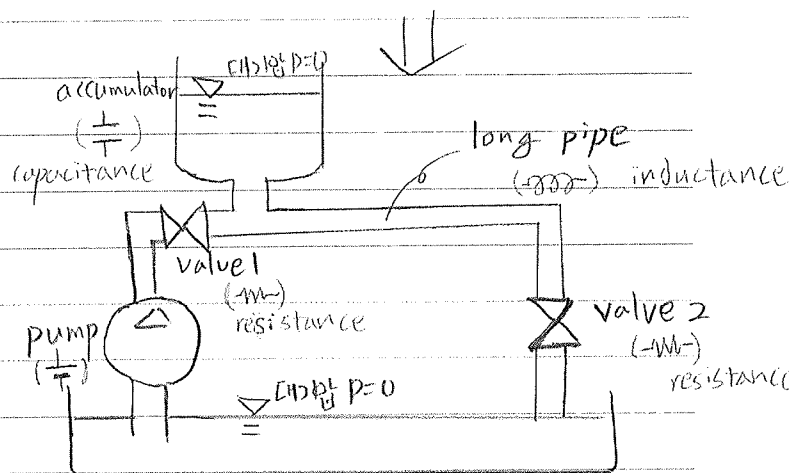 대기압 p=0
accumulator
capacitance
long pipe
inductance
valve1
resistance
pump
valve 2
resistance
대기압 p=0